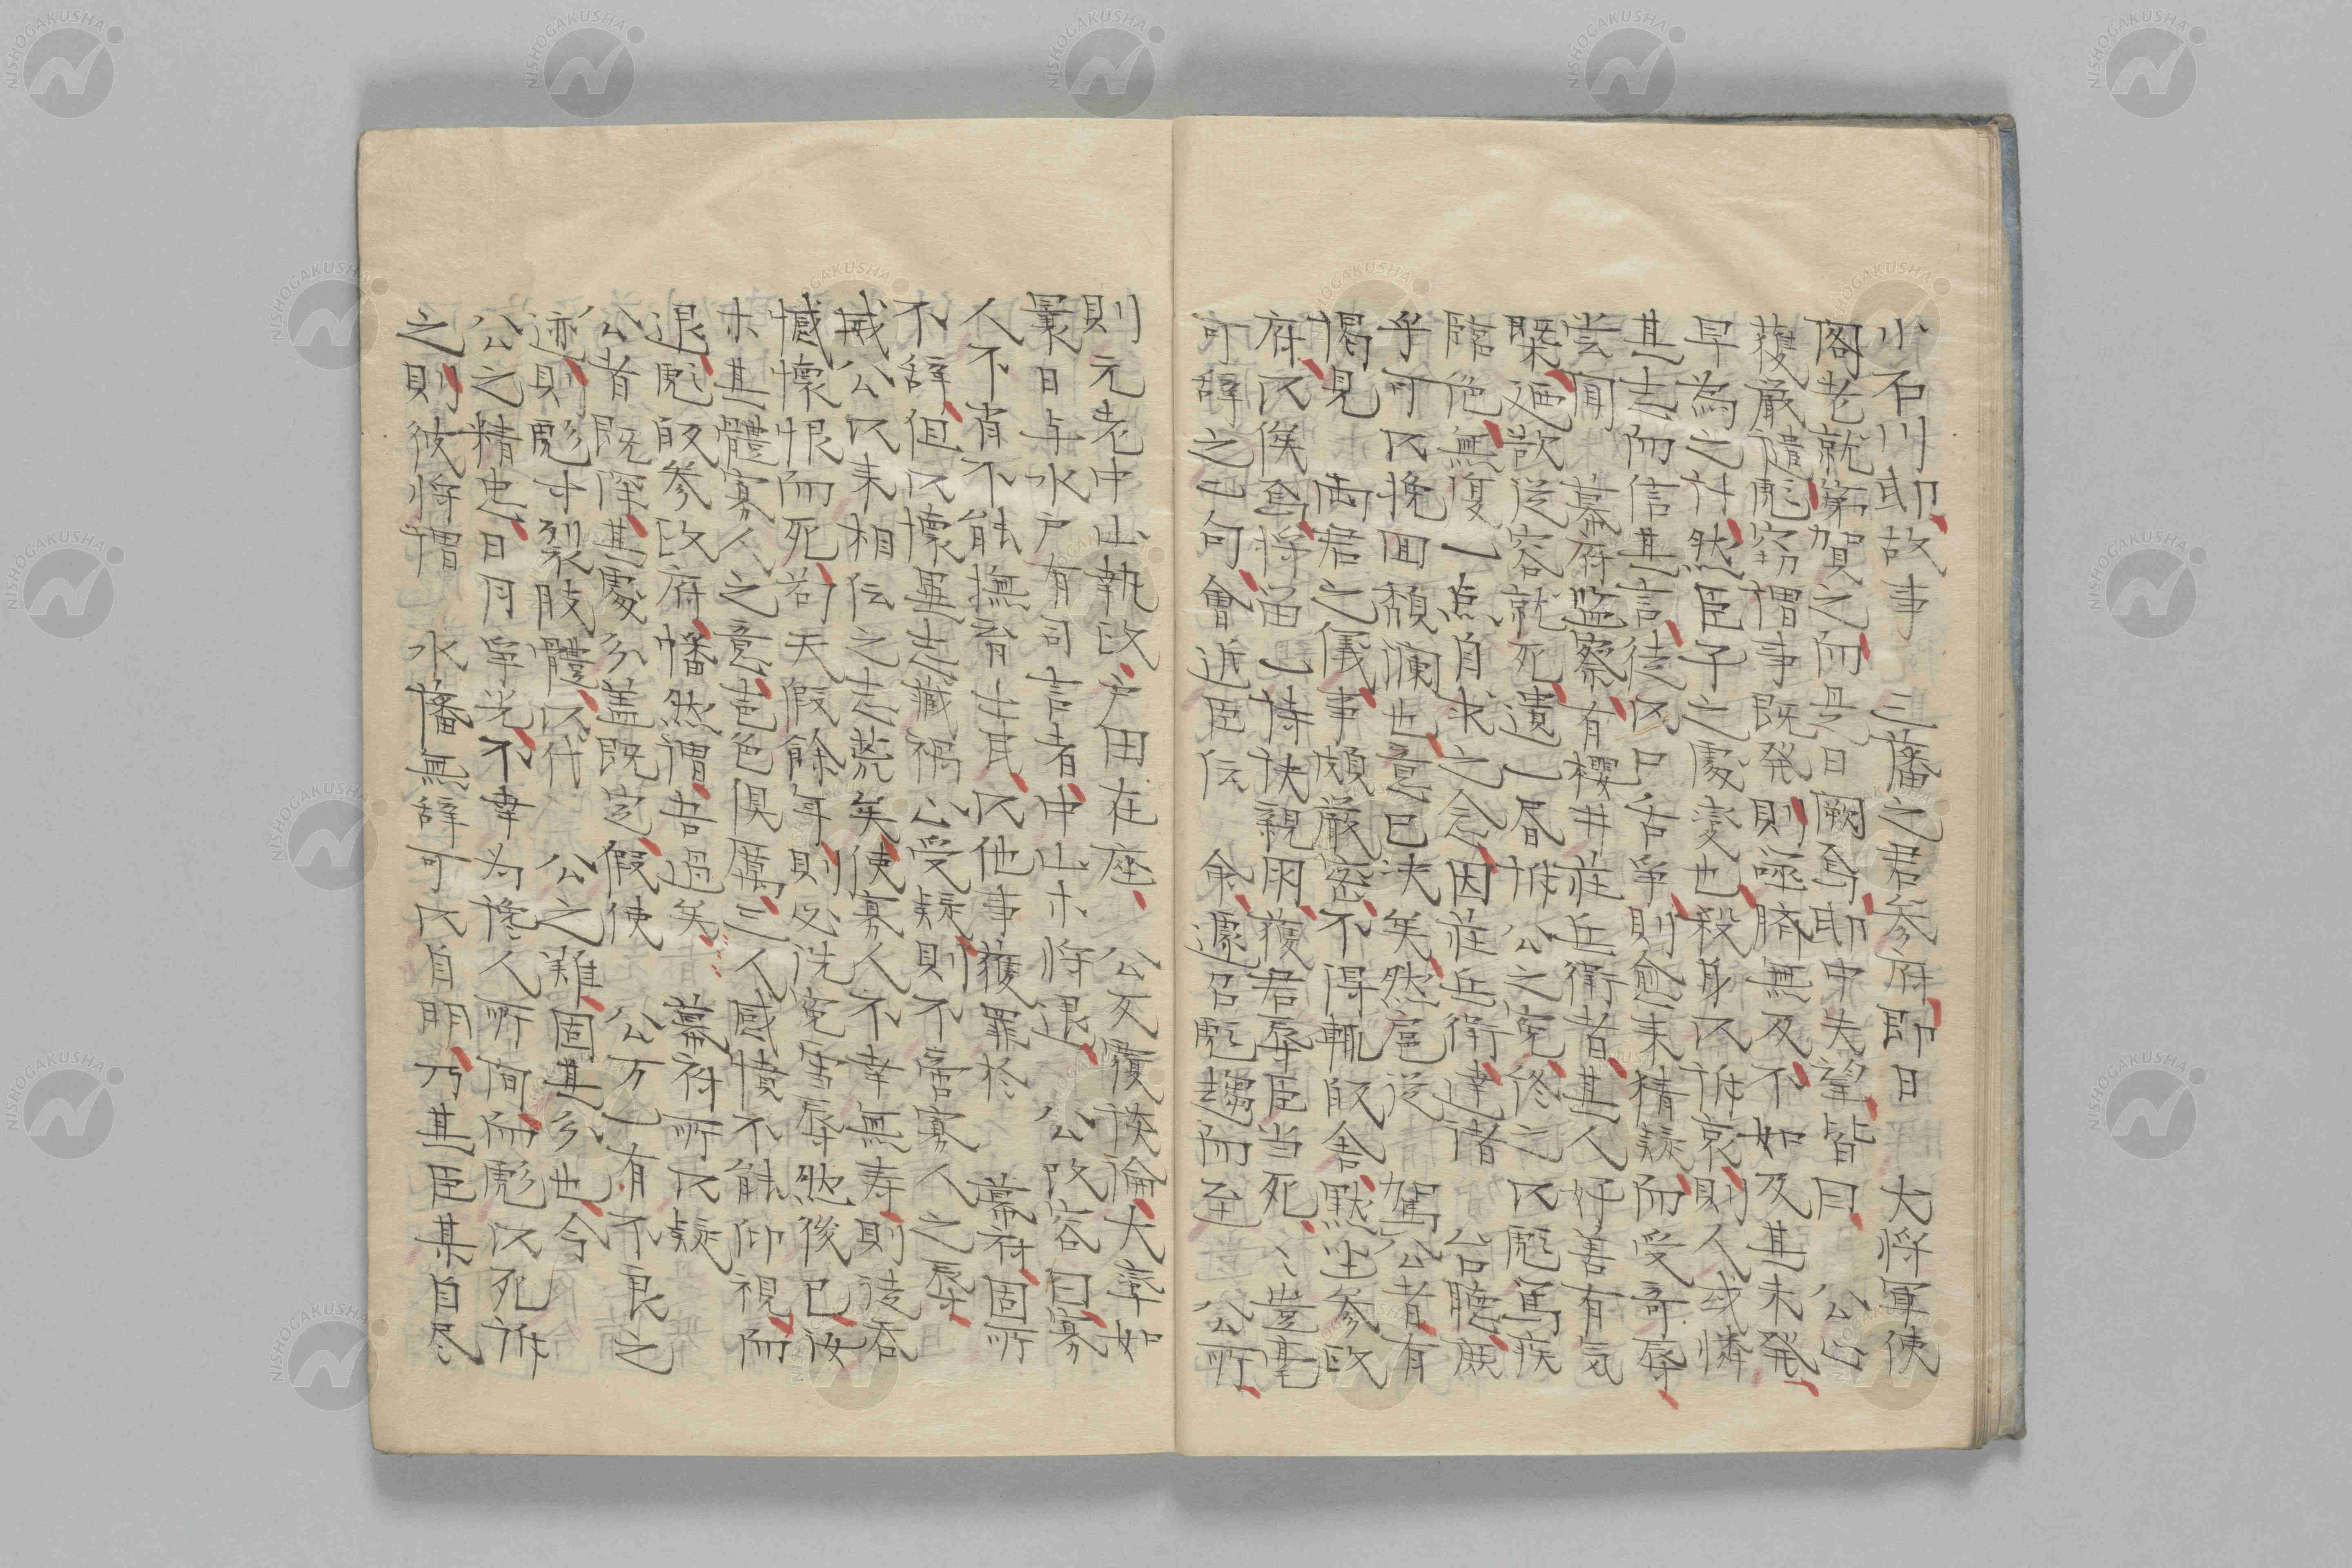 小石川邸故事三藩之君参府即日大将軍使
閣老就第賀之而是日闕焉邸中失望皆曰公必
獲厳譴彪窃謂事既発則噬臍無及不如及其未発
早為之計然臣子之処変也殺身以訴哀則人或憐
其志而信其言徒以口舌争則愈来精疑而受奇辱
嘗聞幕府監察有櫻井荘兵衛者其人好善有気
槩廼欲従容就死遺一層訴公之寃終之以彪篤疾
臨危無復一点自求之念因荘兵衛達諸台聴庶
乎可以挽回頽瀾也意已决矣然扈従駕公者有
謁見両君之儀事頗厳密不得輒帰舎黙坐参政
府以俟命将函一特訣親用獲君辱臣当死〻豈毫
可辞之句會近臣伝命遽召彪趨而至公所
則元老中山執政戸田在座公友覆談倫大率如
曩日与水戸有司言者中山亦将退公改容曰寡
人不肖不能撫育士民以他事獲罪於幕府固所
不辞但以懐異志藏禍心受疑則不啻寡人之辱
威公以来相伝之志荒矣使寡人不幸無寿則徒呑
憾懐恨而死若天假餘年則必洗寃雪辱然後已汝
亦其體寡人之意者色倶厲三人感憤不能仰視而
退彪帰参政府幡然謂吾過矣幕府所以疑
公者既深其処分盖既定假使公万一有不良之
迹則彪寸裂肢體以代公之難固其分也今
公之精忠日月争光不幸為儓人所間而彪以死訴
之則彼将謂水藩無辞可以自明乃其臣某自尽